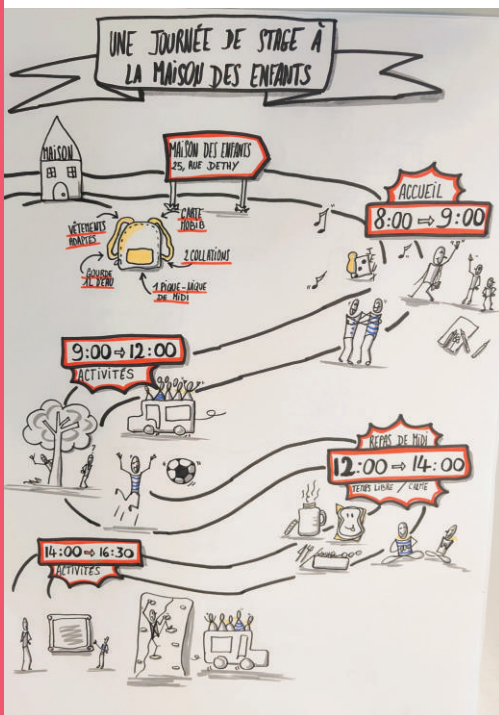 UNE JOURNÉE DE STAGE À
LA MAISON DES ENFANTS
MAISON
MAISON DES ENFANTS
25, RUE DETHY
ACCUEIL
8:00 ⇒ 9:00
VÊTEMENTS
ADAPTÉS
CARTE
MOBIB
2 COLLATIONS
GOURDE
1L D'EAU
1 PIQUE-NIQUE
DE MIDI
9:00 ⇒ 12:00
ACTIVITÉS
REPAS DE MIDI
12:00 ⇒ 14:00
TEMPS LIBRE / CALME
14:00 ⇒ 16:30
ACTIVITÉS